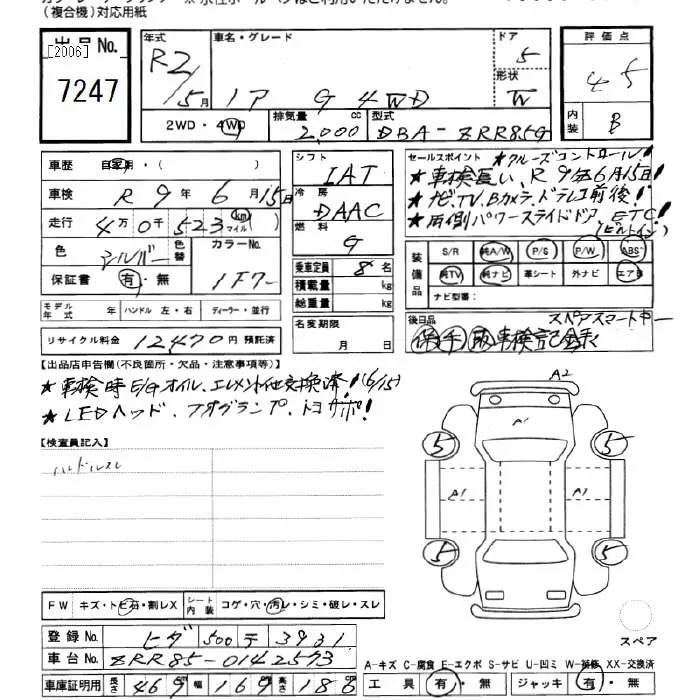 (複合機)対応用紙
出品No.
[2006]
7247
年式 車名・グレード ドア 5
R2/5月 ノア G 4WD 形状 W
2WD・4WD 排気量 2,000 cc 型式 DBA-ZRR85G
評価点
4.5
内装 B
車歴 自家用・( )
車検 R 9年 6月15日
走行 4万0千523 km マイル ( )
色 シルバー 色替 カラーNo.
保証書 有・無 1F7
モデル年式 年 ハンドル 左・右 ディーラー・並行
リサイクル料金 12470円 預託済
シフト IAT
冷房 DAAC
燃料 G
乗車定員 8名
積載量 kg
総重量 kg
名変期限
月 日
セールスポイント ★クルーズコントロール!
★車検長い、R9年6月15日!
★ナビ、TV、Bカメラ、ドラレコ前後!
★両側パワースライドドア、ETC!
(ビルトイン)
装備品 S/R 純A/W P/S P/W ABS
純TV 純ナビ 革シート 外ナビ エアB
ナビ型番:
後日品 スペアスマートキー
保 手 取 車検記録
【出品店申告欄(不良箇所・欠品・注意事項等)】
★車検時E/Gオイル、エレメント他交換済!(6/15)
★LEDヘッド、フォグランプ、トヨサポ!
【検査員記入】
ハンドルスレ
A2
A1
A1 A1
5 5
5 5
スペア
FW キズ・トビ石・割レX シート内装 コゲ・穴・汚レ・シミ・破レ・スレ
登録No. ヒダ 500 テ 3931
車台No. ZRR85-0142573
車庫証明用 長さ 469 幅 169 高さ 186
A-キズ C-腐食 E-エクボ S-サビ U-凹ミ W-補修 XX-交換済
工具 有・無 ジャッキ 有・無